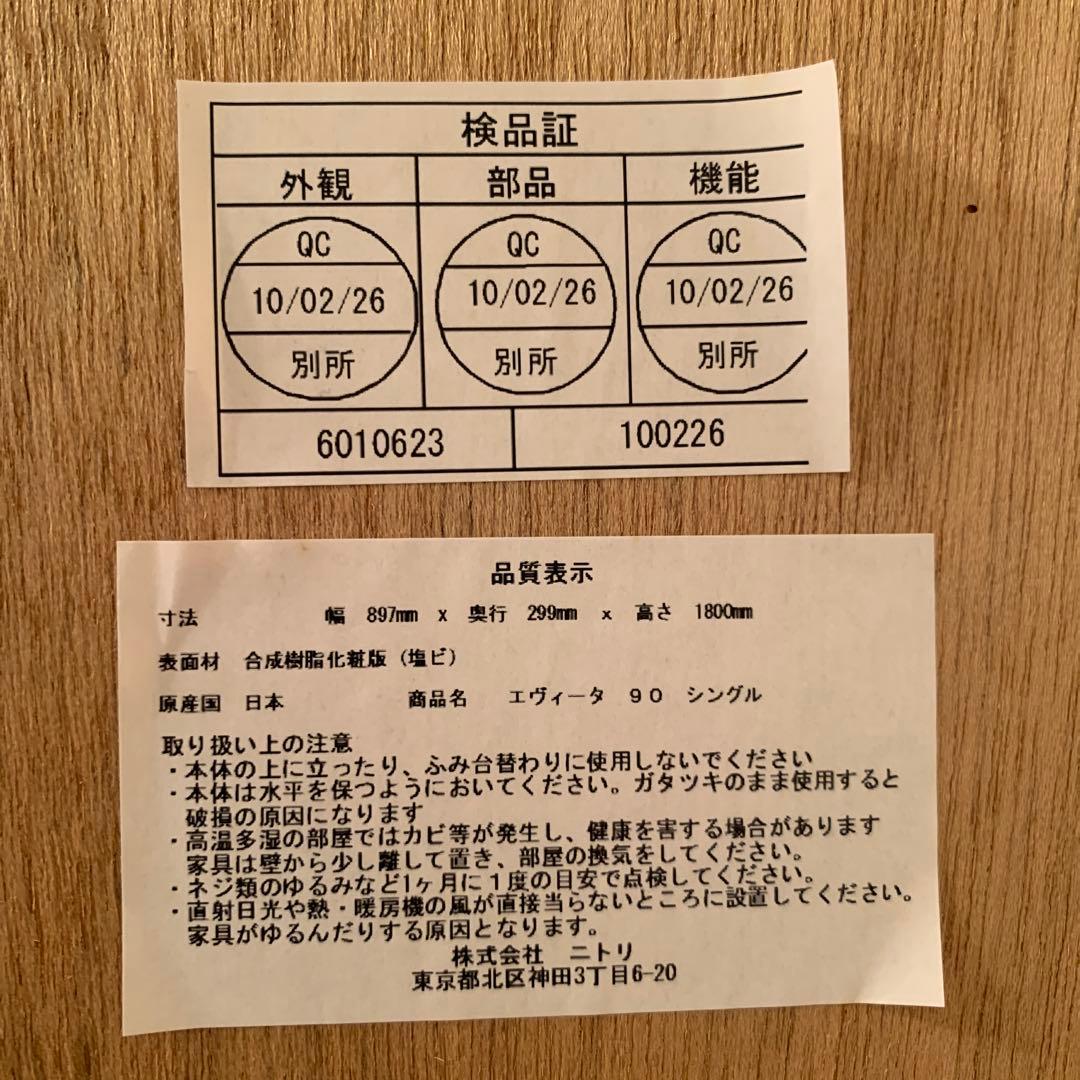 検品証
外観 部品 機能
QC QC QC
10/02/26 10/02/26 10/02/26
別所 別所 別所
6010623 100226
品質表示
寸法 幅 897mm x 奥行 299mm x 高さ 1800mm
表面材 合成樹脂化粧版（塩ビ）
原産国 日本 商品名 エヴィータ ９０ シングル
取り扱い上の注意
・本体の上に立ったり、ふみ台替わりに使用しないでください
・本体は水平を保つようにおいてください。ガタツキのまま使用すると
破損の原因になります
・高温多湿の部屋ではカビ等が発生し、健康を害する場合があります
家具は壁から少し離して置き、部屋の換気をしてください。
・ネジ類のゆるみなど1ヶ月に１度の目安で点検してください。
・直射日光や熱・暖房機の風が直接当らないところに設置してください。
家具がゆるんだりする原因となります。
株式会社 ニトリ
東京都北区神田3丁目6-20